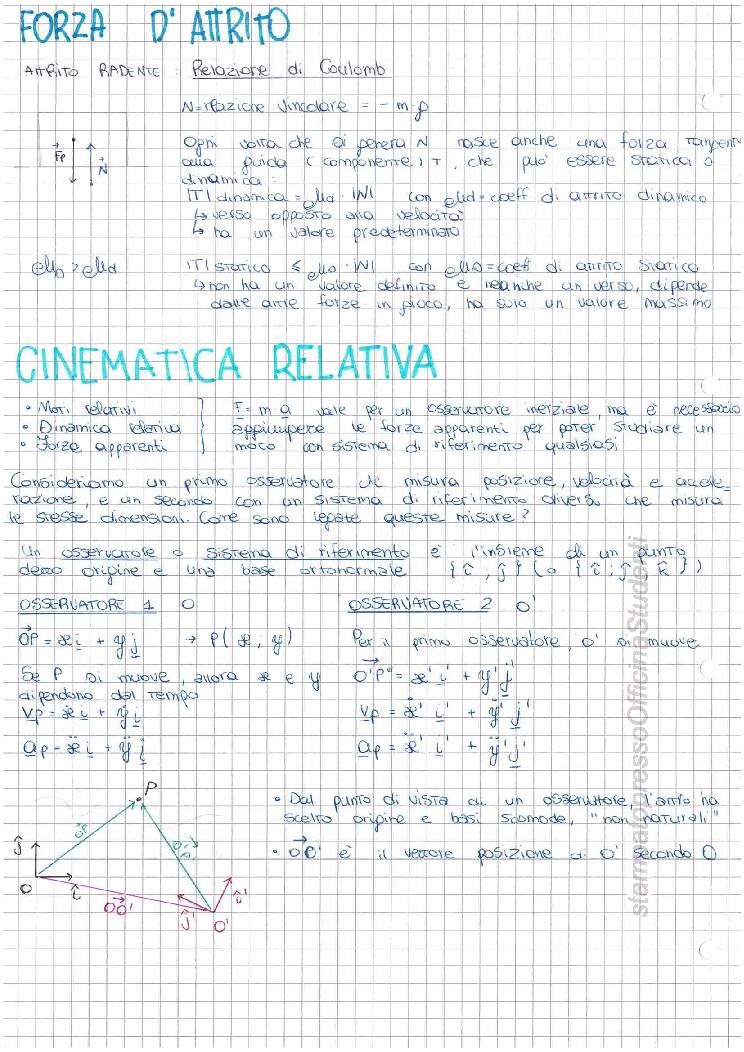 FORZA D'ATTRITO
ATTRITO RADENTE : Relazione di Coulomb
N = reazione vincolare = - m·g
Ogni volta che si genera N nasce anche una forza tangent
alla guida (componente) T, che può essere statica o
dinamica:
|T| dinamica = μd · |N| con μd = coeff di attrito dinamico
↳ verso opposto alla velocità
↳ ha un valore predeterminato
Fp
N
μs > μd
|T| statico ≤ μs · |N| con μs = coeff di attrito statico
↳ non ha un valore definito e neanche un verso, dipende
dalle altre forze in gioco, ha solo un valore massimo
CINEMATICA RELATIVA
• Moti relativi
• Dinamica relativa
• Forze apparenti
F = m a vale per un osservatore inerziale, ma è necessario
aggiungere le forze apparenti per poter studiare un
moto con sistema di riferimento qualsiasi
Consideriamo un primo osservatore che misura posizione, velocità e accele-
razione, e un secondo con un sistema di riferimento diverso che misura
le stesse dimensioni. Come sono legate queste misure?
Un osservatore o sistema di riferimento è l'insieme di un punto
detto origine e una base ortonormale {î ; ĵ} (o {î ; ĵ ; k̂})
OSSERVATORE 1 O
OSSERVATORE 2 O'
OP = x i + y j → P(x ; y)
Per il primo osservatore, O' si muove
Se P si muove, allora x e y
dipendono dal tempo
O'P = x' i' + y' j'
vp = ẋ i + ẏ j
vp = ẋ' i' + ẏ' j'
ap = ẍ i + ÿ j
ap = ẍ' i' + ÿ' j'
P
OP
O'P
ĵ
O
î
OO'
ĵ'
O'
î'
• Dal punto di vista di un osservatore, l'altro ha
scelto origine e basi scomode, "non naturali"
• OO' è il vettore posizione di O' secondo O
stampatopressoOfficinaStudenti